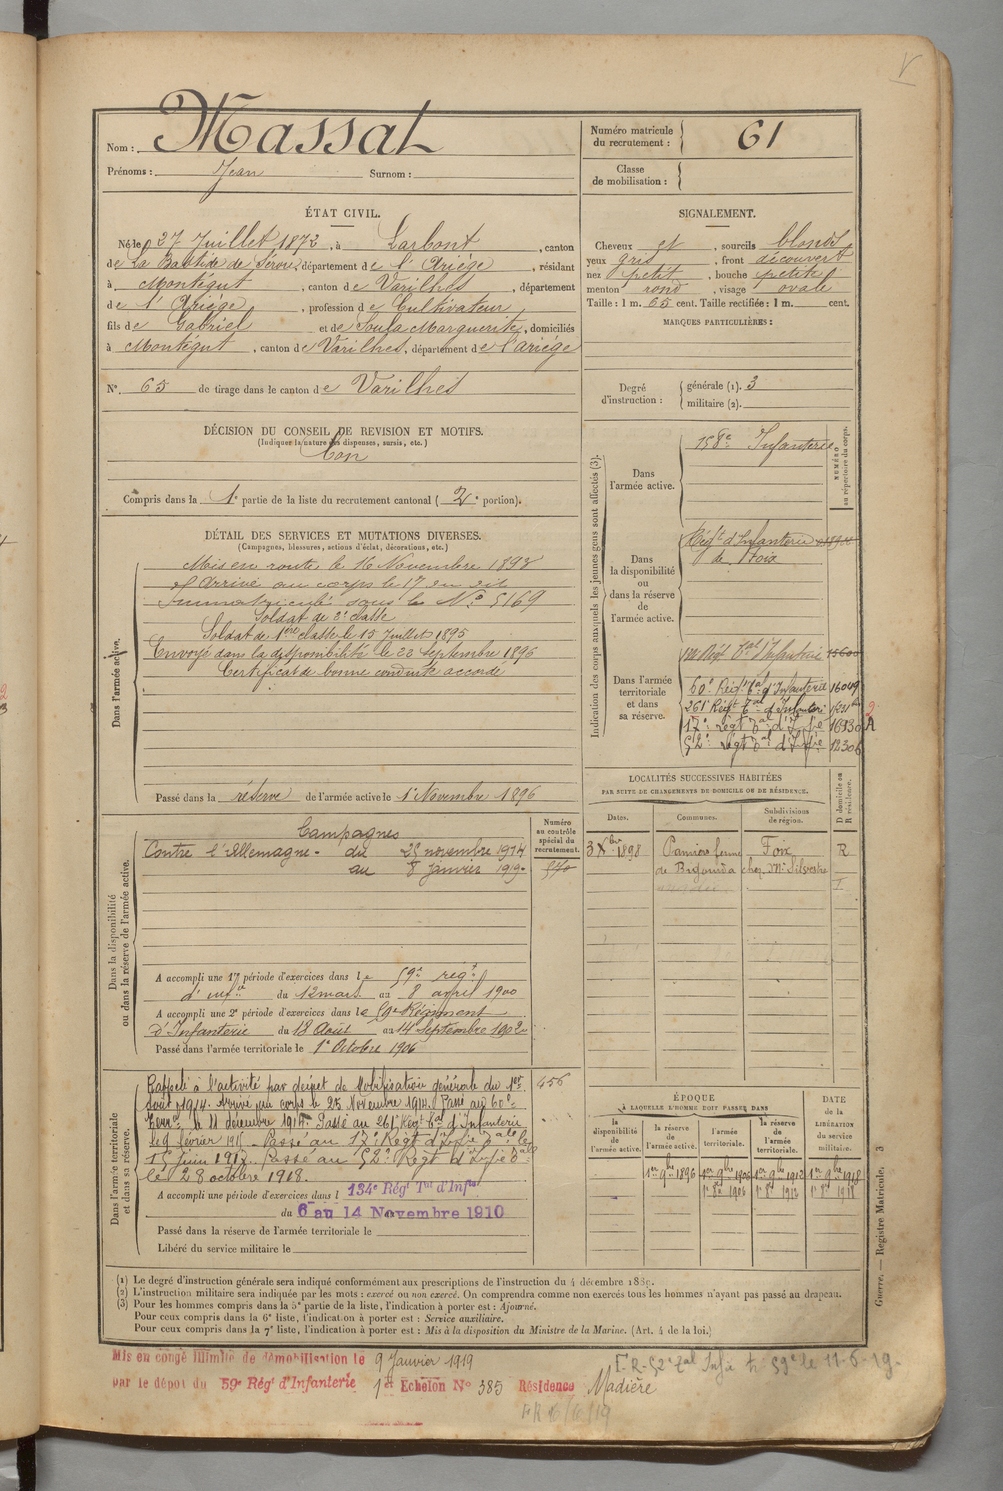 V
Nom : Massat
Prénoms : Jean Surnom :
Numéro matricule
du recrutement : 61
Classe
de mobilisation :
ÉTAT CIVIL.
Né le 27 Juillet 1872, à Larbont, canton
de La Bastide de Sérou, département de l'Ariège, résidant
à Montégut, canton de Varilhes, département
de l'Ariège, profession de Cultivateur
fils de Gabriel et de Soula Marguerite, domiciliés
à Montégut, canton de Varilhes, département de l'ariège
N° 65 de tirage dans le canton de Varilhes
SIGNALEMENT.
Cheveux et, sourcils blonds
yeux gris, front découvert
nez petit, bouche petite
menton rond, visage ovale
Taille : 1 m. 65 cent. Taille rectifiée : 1 m. cent.
MARQUES PARTICULIÈRES :
Degré
d'instruction :
générale (1). 3
militaire (2).
DÉCISION DU CONSEIL DE REVISION ET MOTIFS.
(Indiquer la nature des dispenses, sursis, etc.)
bon
Compris dans la 1e partie de la liste du recrutement cantonal (2e portion).
DÉTAIL DES SERVICES ET MUTATIONS DIVERSES.
(Campagnes, blessures, actions d'éclat, décorations, etc.)
Dans l'armée active.
Mis en route le 16 Novembre 1893
et Arrivé au corps le 17 du dit
Immatriculé sous le N° 5169
Soldat de 2e classe
Soldat de 1ère classe le 15 Juillet 1895
Envoyé dans la disponibilité le 20 Septembre 1896
Certificat de bonne conduite accordé
Passé dans la réserve de l'armée active le 1er Novembre 1896
Indication des corps auxquels les jeunes gens sont affectés (3).
NUMÉRO
au répertoire du corps.
Dans
l'armée active.
158e Infanterie
Dans
la disponibilité
ou
dans la réserve
de
l'armée active.
Régt d'Infanterie
de Foix
Dans l'armée
territoriale
et dans
sa réserve.
Régt Tal d'Infanterie 15600
60e Régt Tal d'Infanterie 16049
261e Régt Tal d'Infanterie
17e Regt Tal d'Infie 16930 A
52e Regt Tal d'Infie 12306
2
Dans la disponibilité
ou dans la réserve de l'armée active.
Numéro
au contrôle
spécial du
recrutement.
570
Campagnes
Contre l'Allemagne - du 25 novembre 1914
au 8 janvier 1919
A accompli une 1re période d'exercices dans le 59e regt
d'infie du 12 mars au 8 avril 1900
A accompli une 2e période d'exercices dans le 59e Régiment
D'Infanterie du 18 Août au 14 Septembre 1902
Passé dans l'armée territoriale le 1er Octobre 1906
LOCALITÉS SUCCESSIVES HABITÉES
PAR SUITE DE CHANGEMENTS DE DOMICILE OU DE RÉSIDENCE.
Dates. Communes. Subdivisions
de région.
D domicile ou
R résidence.
3 Xbre 1898 Pamiers ferme Foix R
de chez Mr Silvestre
Dans l'armée territoriale
et dans sa réserve.
Rappelé à l'activité par décret de Mobilisation générale du 1er 456
Aout 1914. Arrivé au corps le 25 Novembre 1914. Passé au 60e
le 11 décembre 1914. Passé au 261e Régt Tal d'Infanterie
le 9 février 1915. Passé au 17e Regt d'Infie Tale le
15 Juin 1917. Passé au 52e Regt d'Infie Tale
le 28 octobre 1918.
A accompli une période d'exercices dans l 134e Régt Tal d'Infie
du 6 au 14 Novembre 1910
Passé dans la réserve de l'armée territoriale le
Libéré du service militaire le
ÉPOQUE
À LAQUELLE L'HOMME DOIT PASSER DANS
DATE
de la
LIBÉRATION
du service
militaire.
la
disponibilité
de
l'armée active.
la réserve
de
l'armée active.
l'armée
territoriale.
la réserve
de
l'armée
territoriale.
1er 9bre 1896 1er 9bre 1906 1er 9bre 1912 1er 9bre 1918
1er 8bre 1906 1er 8bre 1912 1er 8bre 1918
(1) Le degré d'instruction générale sera indiqué conformément aux prescriptions de l'instruction du 4 décembre 1889.
(2) L'instruction militaire sera indiquée par les mots : exercé ou non exercé. On comprendra comme non exercés tous les hommes n'ayant pas passé au drapeau.
(3) Pour les hommes compris dans la 5e partie de la liste, l'indication à porter est : Ajourné.
Pour ceux compris dans la 6e liste, l'indication à porter est : Service auxiliaire.
Pour ceux compris dans la 7e liste, l'indication à porter est : Mis à la disposition du Ministre de la Marine. (Art. 4 de la loi.)
Guerre. — Registre Matricule. 3
Mis en congé illimité de démobilisation le 9 Janvier 1919
par le dépôt du 59e Régt d'Infanterie 1er Echelon N° 385 Résidence Madière
R-52e Tal Infie 59e le 11-6-19.